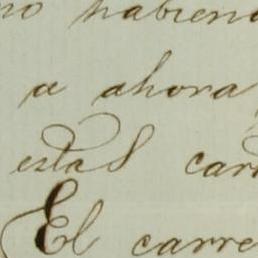 no habien
a ahora
estas car
El carre